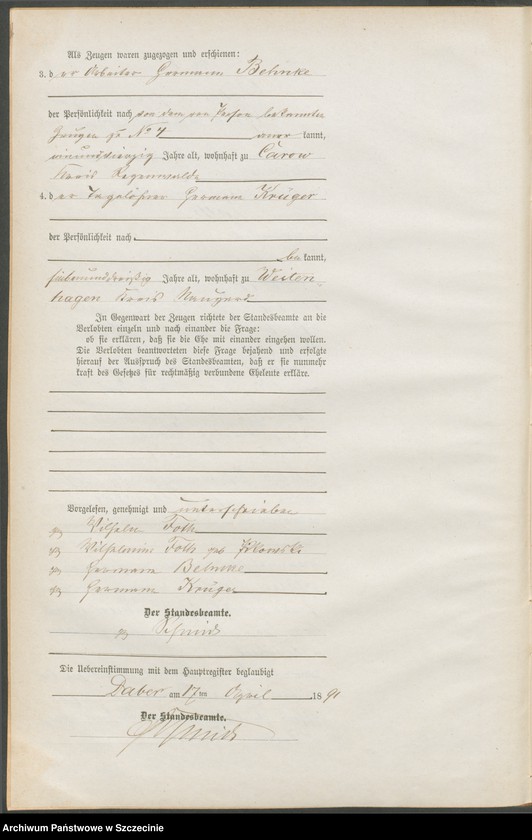 Als Zeugen waren zugezogen und erschienen:
3. der Arbeiter Hermann Behnke
der Persönlichkeit nach von dem von Person bekannten
Zeugen zu No 4 aner kannt,
einundvierzig Jahre alt, wohnhaft zu Carow
Kreis Regenwalde
4. der Tagelöhner Hermann Krüger
der Persönlichkeit nach
be kannt,
siebenunddreißig Jahre alt, wohnhaft zu Weiten-
hagen Kreis Naugard
In Gegenwart der Zeugen richtete der Standesbeamte an die
Verlobten einzeln und nach einander die Frage:
ob sie erklären, daß sie die Ehe mit einander eingehen wollen.
Die Verlobten beantworteten diese Frage bejahend und erfolgte
hierauf der Ausspruch des Standesbeamten, daß er sie nunmehr
kraft des Gesetzes für rechtmäßig verbundene Eheleute erkläre.
Vorgelesen, genehmigt und unterschrieben
Wilhelm Foth
Wilhelmine Foth geb
Hermann Behnke
Hermann Krüger
Der Standesbeamte.
Schmidt
Die Uebereinstimmung mit dem Hauptregister beglaubigt
Daber am 17ten April 1891
Der Standesbeamte.
Schmidt
Archiwum Państwowe w Szczecinie